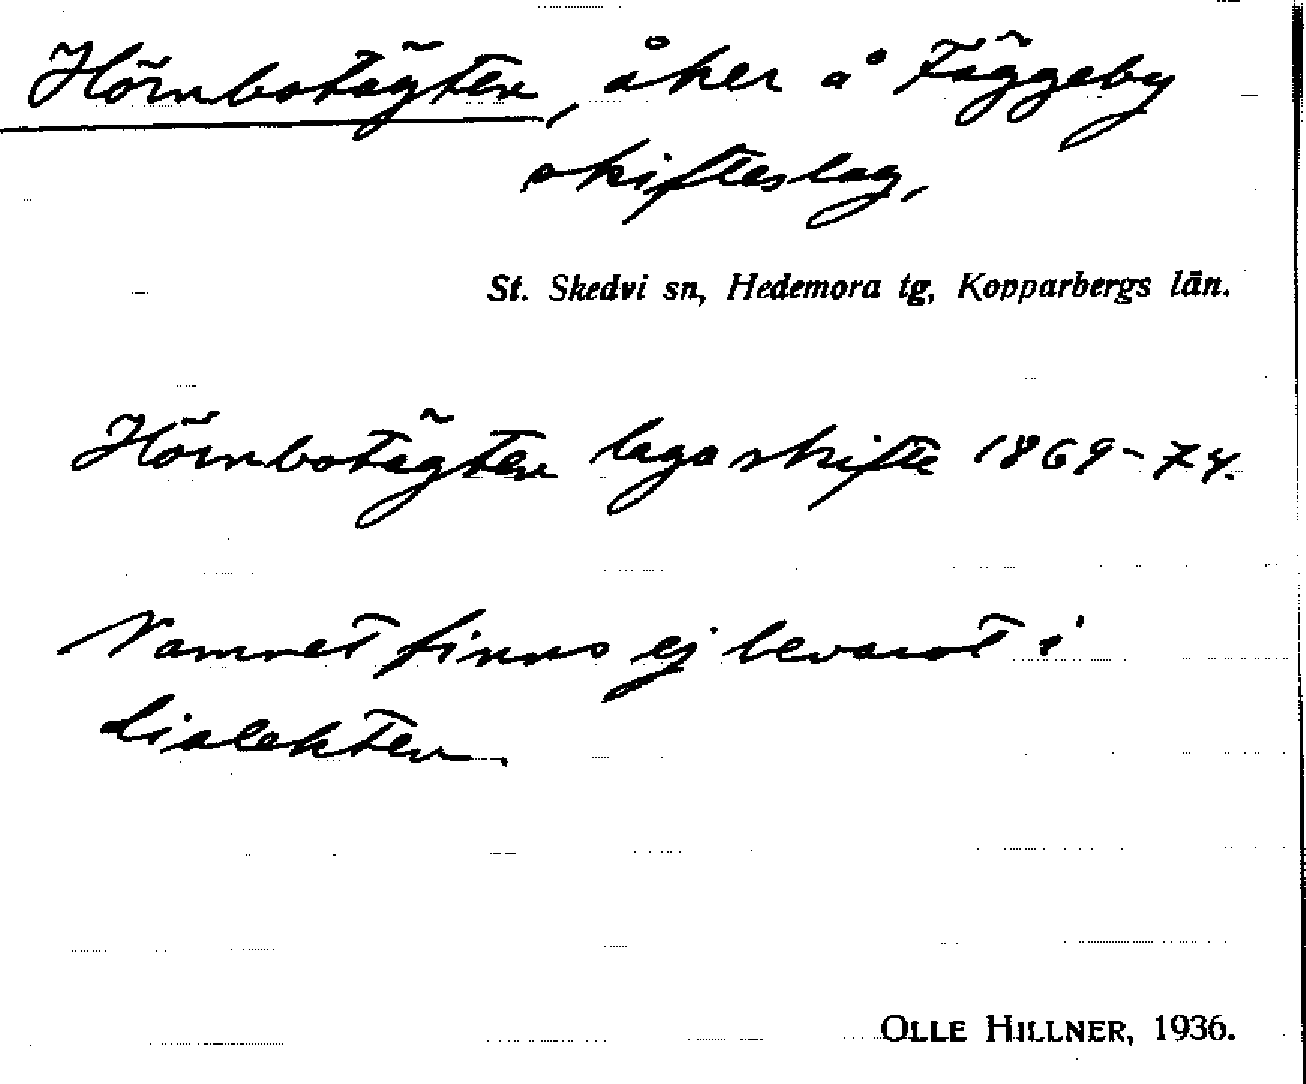 Hörnbotägten, åker å Fäggeby
skifteslag,
St. Skedvi sn, Hedemora tg, Kopparbergs län.
Hörnbotägten laga skifte 1869-74.
Namnet finns ej bevarat i
dialekten.
OLLE HILLNER, 1936.